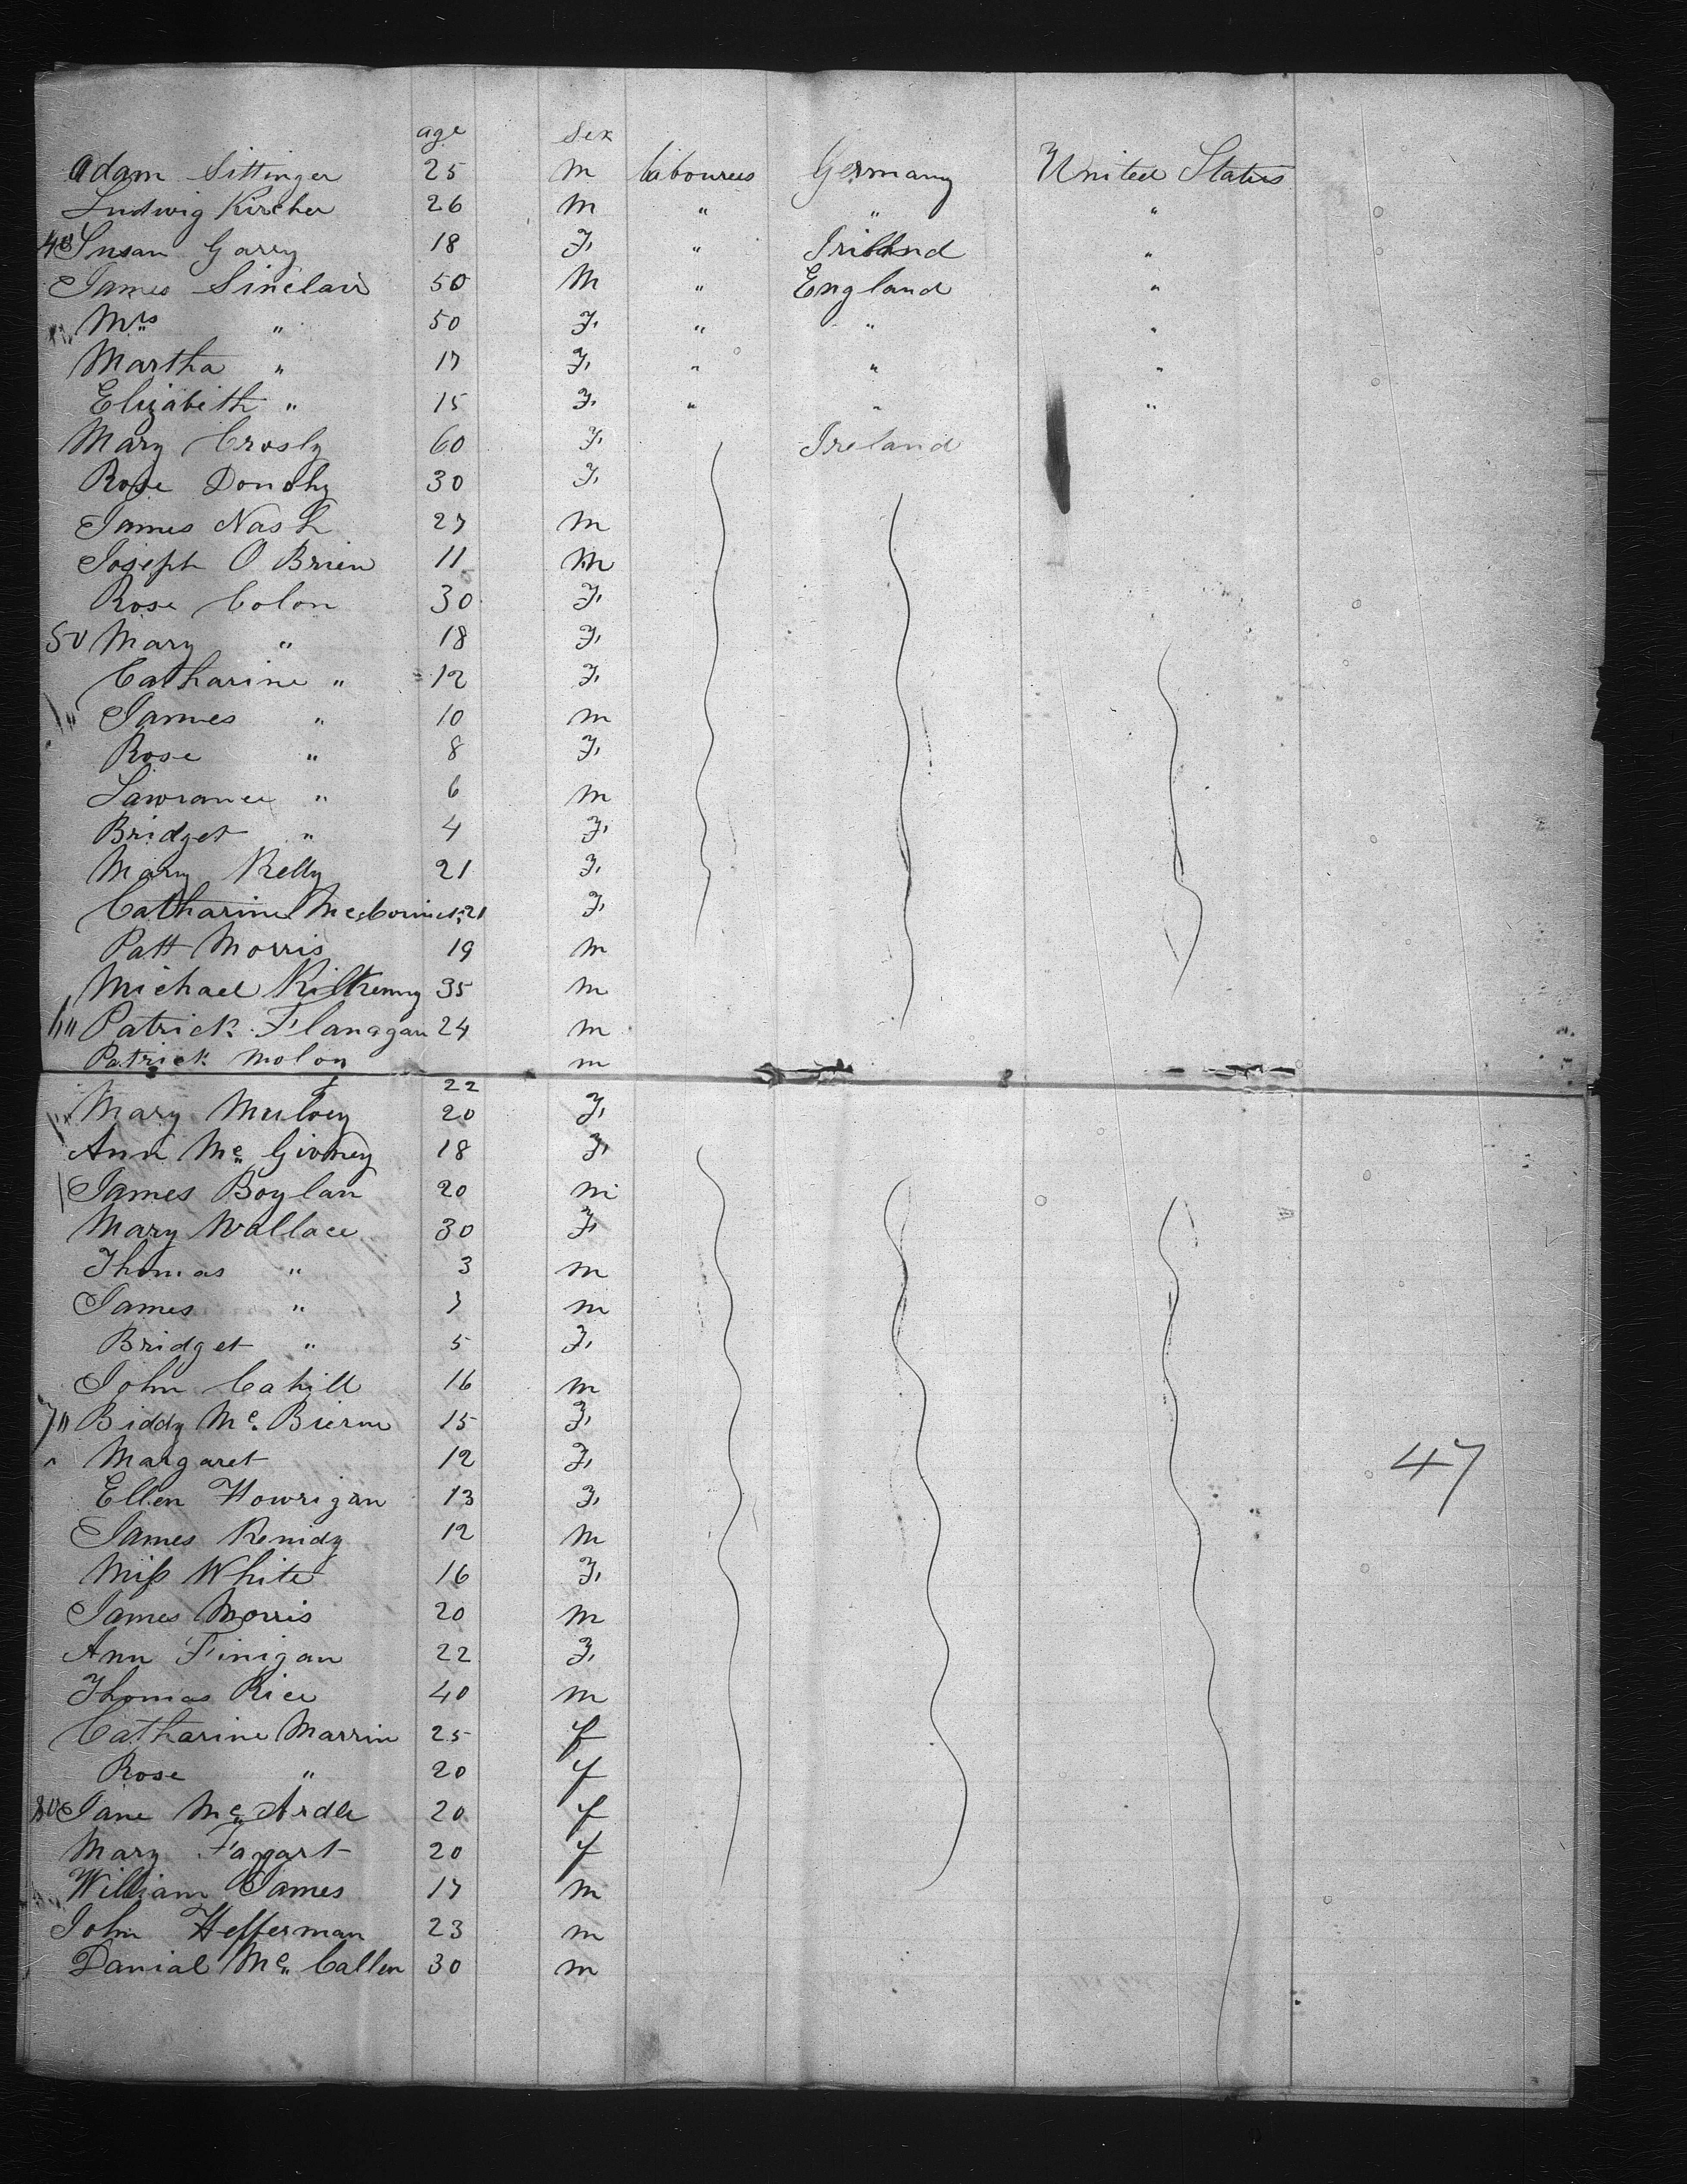 age sex
Adam Sittinger 25 m labourers Germany United States
Ludwig Kircher 26 m " " "
40 Susan Garry 18 F. " Iriland "
James Sinclair 50 m " England "
Mrs " 50 F. " " "
Martha " 17 F. " " "
Elizabeth " 15 F. " " "
Mary Crosby 60 F. Ireland
Rose Donohy 30 F.
James Nash 27 m
Joseph O Brien 11 m
Rose Colon 30 F.
50 Mary " 18 F.
Catharine " 12 F.
James " 10 m
Rose " 8 F.
Lawrance " 6 m
Bridget " 4 F.
Mary Kelly 21 F.
Catharine McCormick 21 F.
Patt Morris 19 m
Michael Kilkenny 35 m
Patrick Flanagan 24 m
Patrick Molon 22 m
Mary Mulvey 20 F.
Ann Mc Givney 18 F.
James Boylan 20 m
Mary Wallace 30 F.
Thomas " 3 m
James " 7 m
Bridget " 5 F.
John Cahill 16 m
Biddy Mc Bierne 15 F.
Margaret 12 F.
Ellen Howrigan 13 F.
47
James Kenidy 12 m
Miss White 16 F.
James Morris 20 m
Ann Finigan 22 F.
Thomas Rice 40 m
Catharine Marrin 25 f
Rose " 20 f
80 Jane Mc Ardle 20 f
Mary Tagart 20 f
William James 17 m
John Hefferman 23 m
Danial Mc Callen 30 m